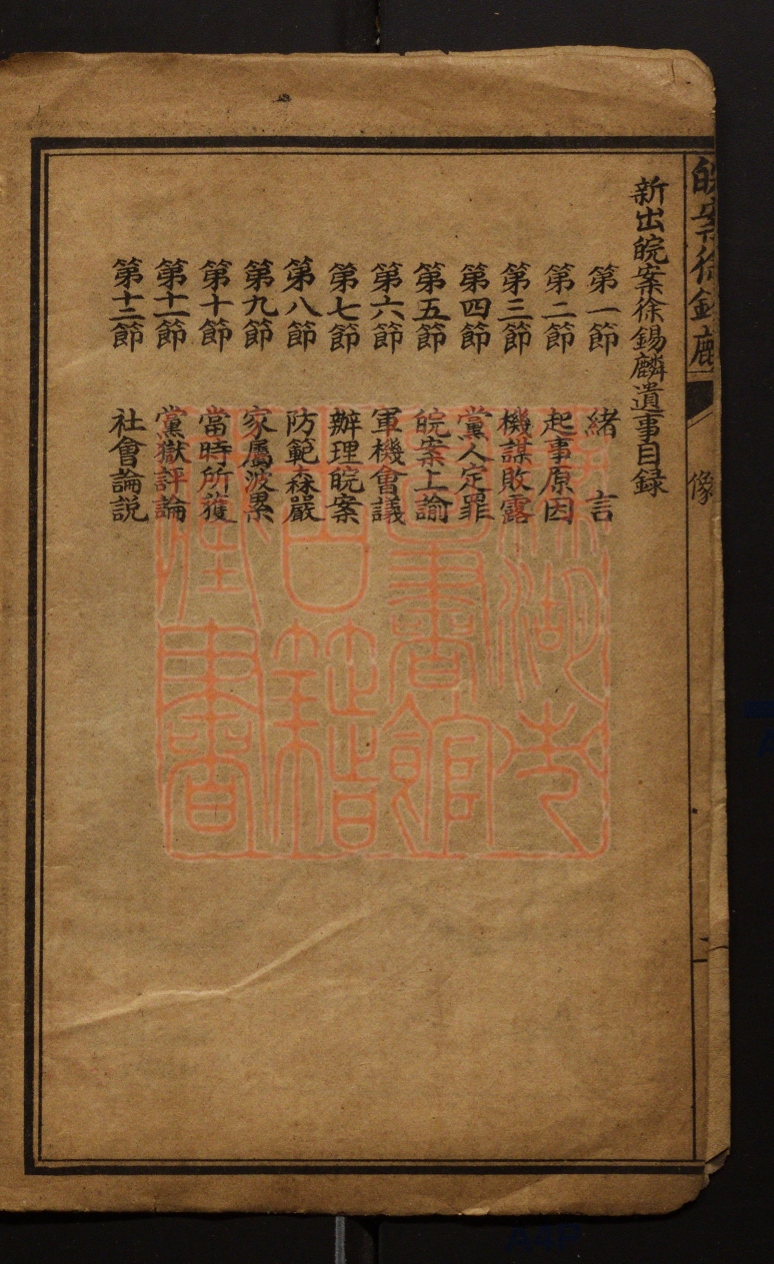 新出皖案徐錫麟遺事目録
第一節 緒言
第二節 起事原因
第三節 機謀敗露
第四節 黨人定罪
第五節 皖案上諭
第六節 軍機會議
第七節 辦理皖案
第八節 防範森嚴
第九節 家屬波累
第十節 當時所獲
第十一節 黨獄評論
第十二節 社會論説
皖案徐錫麟
像
蕪湖市圖書館古籍藏書